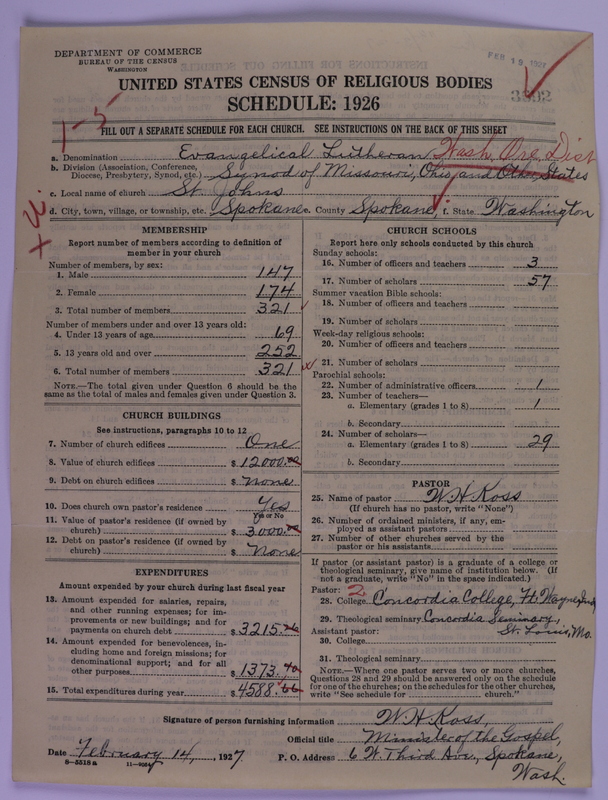 DEPARTMENT OF COMMERCE
BUREAU OF THE CENSUS
WASHINGTON
FEB 15 1927
UNITED STATES CENSUS OF RELIGIOUS BODIES
SCHEDULE: 1926
1-5
FILL OUT A SEPARATE SCHEDULE FOR EACH CHURCH. SEE INSTRUCTIONS ON THE BACK OF THIS SHEET
a. Denomination Evangelical Lutheran Wash. Ore. Dist
b. Division (Association, Conference, Diocese, Presbytery, Synod, etc.) Synod of Missouri, Ohio and Other States
c. Local name of church St Johns
d. City, town, village, or township, etc. Spokane e. County Spokane f. State Washington
MEMBERSHIP
Report number of members according to definition of
member in your church
Number of members, by sex:
1. Male 147
2. Female 174
3. Total number of members 321
Number of members under and over 13 years old:
4. Under 13 years of age 69
5. 13 years old and over 252
6. Total number of members 321
NOTE.—The total given under Question 6 should be the
same as the total of males and females given under Question 3.
CHURCH BUILDINGS
See instructions, paragraphs 10 to 12
7. Number of church edifices One
8. Value of church edifices $12000.00
9. Debt on church edifices $ None
10. Does church own pastor's residence Yes
Yes or No
11. Value of pastor's residence (if owned by
church) $3000.00
12. Debt on pastor's residence (if owned by
church) $ None
EXPENDITURES
Amount expended by your church during last fiscal year
13. Amount expended for salaries, repairs,
and other running expenses; for im-
provements or new buildings; and for
payments on church debt $3215.26
14. Amount expended for benevolences, in-
cluding home and foreign missions; for
denominational support; and for all
other purposes $1373.40
15. Total expenditures during year $4588.66
CHURCH SCHOOLS
Report here only schools conducted by this church
Sunday schools:
16. Number of officers and teachers 3
17. Number of scholars 57
Summer vacation Bible schools:
18. Number of officers and teachers
19. Number of scholars
Week-day religious schools:
20. Number of officers and teachers
21. Number of scholars
Parochial schools:
22. Number of administrative officers 1
23. Number of teachers—
a. Elementary (grades 1 to 8) 1
b. Secondary
24. Number of scholars—
a. Elementary (grades 1 to 8) 29
b. Secondary
PASTOR
25. Name of pastor W H Koss
(If church has no pastor, write "None")
26. Number of ordained ministers, if any, em-
ployed as assistant pastors
27. Number of other churches served by the
pastor or his assistants
If pastor (or assistant pastor) is a graduate of a college or
theological seminary, give name of institution below. (If
not a graduate, write "No" in the space indicated.)
Pastor: 2
28. College Concordia College, Ft. Wayne, Ind.
29. Theological seminary Concordia Seminary,
Assistant pastor: St. Louis, Mo.
30. College
31. Theological seminary
NOTE.—Where one pastor serves two or more churches,
Questions 28 and 29 should be answered only on the schedule
for one of the churches; on the schedules for the other churches,
write "See schedule for church."
Signature of person furnishing information W. H. Koss,
Official title Minister of the Gospel,
Date February 14, 1927 P. O. Address 6 W. Third Ave, Spokane,
Wash.
8-5518 a